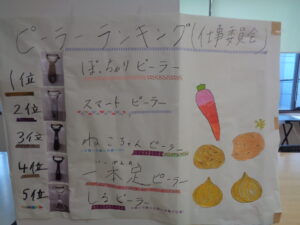 ピーラーランキング(仕事委員会)
1位 ぽっちゃりピーラー
2位 スマートピーラー
3位 ねこちゃんピーラー
4位 一本足ピーラー
5位 しろピーラー